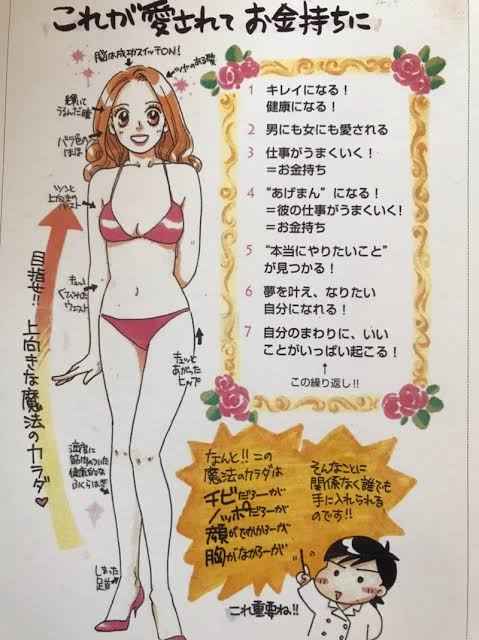 これが愛されて お金持ちに
脳は成功スイッチON!
ツヤのある髪
輝いて
うるんだ瞳
バラ色の
ほほ
ツンと
上向きの
バスト
キュッと
くびれた
ウエスト
キュッと
あがった
ヒップ
適度に
筋肉のついた
健康的な
ふくらはぎ
しまった
足首
目指せ!! 上向きな魔法のカラダ♥
1 キレイになる!
健康になる!
2 男にも女にも愛される
3 仕事がうまくいく!
=お金持ち
4 “あげまん”になる!
=彼の仕事がうまくいく!
=お金持ち
5 “本当にやりたいこと”
が見つかる!
6 夢を叶え、なりたい
自分になれる!
7 自分のまわりに、いい
ことがいっぱい起こる!
↑
この繰り返し!!
なんと!! この
魔法のカラダは
チビだろーが
ノッポだろーが
顔がでかかろーが
胸がなかろーが
そんなことに
関係なく誰でも
手に入れられる
のです!!
これ重要ね!!